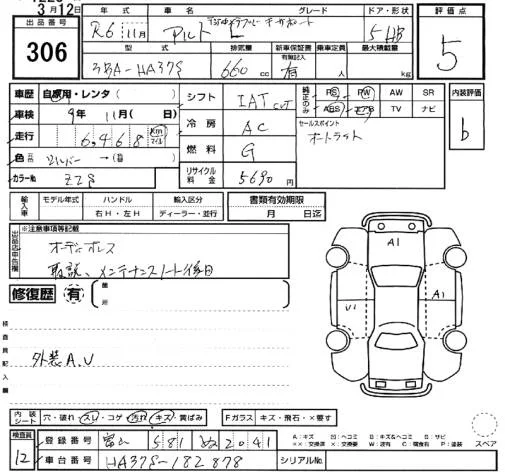 3月12日
出品番号 306
年式 車名 グレード ドア・形状
R6 11月 アルト L 5 HB
型式 排気量 新車保証書 乗車定員 最大積載量
有無記入
3BA-HA37S 660 cc 有 人 kg
評価点 5
車歴 自家用・レンタ( )
シフト IAT
純正のみ PS PW AW SR
ABS エアB TV ナビ
内装評価 b
車検 9年 11月( 日)
冷房 AC
セールスポイント
オートライト
走行 6,468 Km マイル
燃料 G
色 シルバー →(替)
リサイクル料金 5690
カラーNo. ZZS
輸入車 モデル年式 ハンドル 輸入区分
右H・左H ディーラー・並行
書類有効期限
月 日迄
出品店申告欄 ※注意事項等記載
オーディオレス
取説、メンテナンスノート後日
修復歴 有 箇所
A1
A1
U1
検査員記入欄
外装A,U
内装シート 穴・破れ・スレ・コゲ・汚れ・キズ・黄ばみ
Fガラス キズ・飛石・×要す
検査員 12
登録番号 富山 581 ぬ 2041
車台番号 HA37S-182878
シリアルNo.
A:キズ H:ヘコミ B:キズ&ヘコミ S:サビ
××:交換済 ×:交換要 W:波有 C:腐食有 P:塗装
スペア